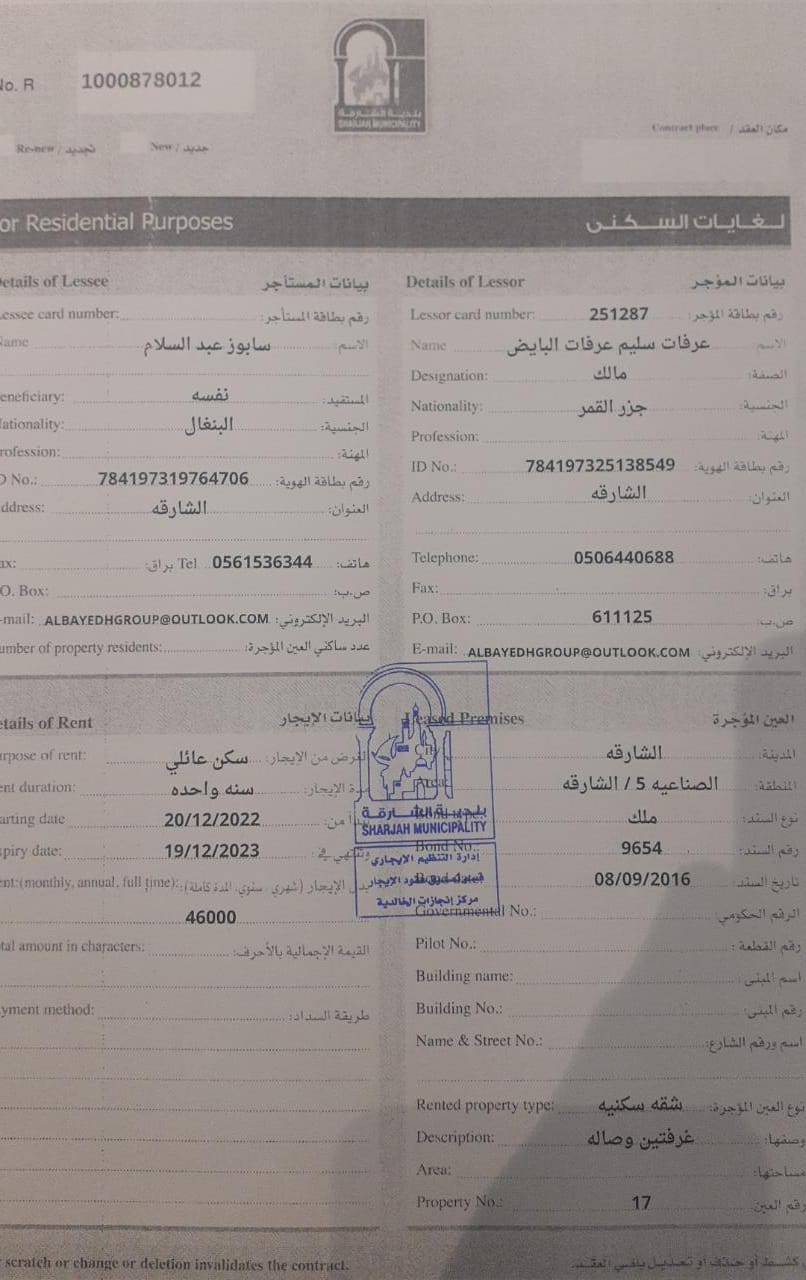 No. R 1000878012
بلدية الشارقة
SHARJAH MUNICIPALITY
Contract place / مكان العقد
Re-new / تجديد New / جديد
or Residential Purposes لغايات السكنى
etails of Lessee بيانات المستأجر
essee card number: رقم بطاقة المستأجر:
ame سابوز عبد السلام الاسم:
eneficiary: نفسه المستفيد:
ationality: البنغال الجنسية:
rofession: المهنة:
D No.: 784197319764706 رقم بطاقة الهوية:
ddress: الشارقه العنوان:
ax: براق: Tel 0561536344 هاتف:
.O. Box: ص.ب:
-mail: ALBAYEDHGROUP@OUTLOOK.COM البريد الإلكتروني:
umber of property residents: عدد ساكني العين المؤجرة:
Details of Lessor بيانات المؤجر
Lessor card number: 251287 رقم بطاقة المؤجر:
Name عرفات سليم عرفات البايض الاسم
Designation: مالك الصفة:
Nationality: جزر القمر الجنسية:
Profession: المهنة:
ID No.: 784197325138549 رقم بطاقة الهوية:
Address: الشارقه العنوان:
Telephone: 0506440688 هاتف:
Fax: براق:
P.O. Box: 611125 ص.ب:
E-mail: ALBAYEDHGROUP@OUTLOOK.COM البريد الإلكتروني:
etails of Rent بيانات الإيجار
rpose of rent: سكن عائلي الغرض من الإيجار:
ent duration: سنه واحده مدة الإيجار:
arting date 20/12/2022 تبدأ من:
xpiry date: 19/12/2023 وتنتهي في:
ent:(monthly, annual, full time): بدل الإيجار (شهري، سنوي، المدة كاملة):
46000
tal amount in characters: القيمة الإجمالية بالأحرف:
yment method: طريقة السداد:
Leased Premises العين المؤجرة
City الشارقه المدينة:
Area: الصناعيه 5 / الشارقه المنطقة:
ملك نوع السند:
Bond No.: 9654 رقم السند:
08/09/2016 تاريخ السند:
Governmental No.: الرقم الحكومي:
Pilot No.: رقم القطعة:
Building name: اسم المبنى:
Building No.: رقم المبنى:
Name & Street No.: اسم ورقم الشارع:
Rented property type: شقه سكنيه نوع العين المؤجرة:
Description: غرفتين وصاله وصفها:
Area: مساحتها:
Property No.: 17 رقم العين:
بلدية الشارقة
SHARJAH MUNICIPALITY
إدارة التنظيم الإيجاري
قسم تصديق عقود الإيجار
مركز إنجازات الخالدية
scratch or change or deletion invalidates the contract. كشط أو حذف أو تعديل يلغي العقد.